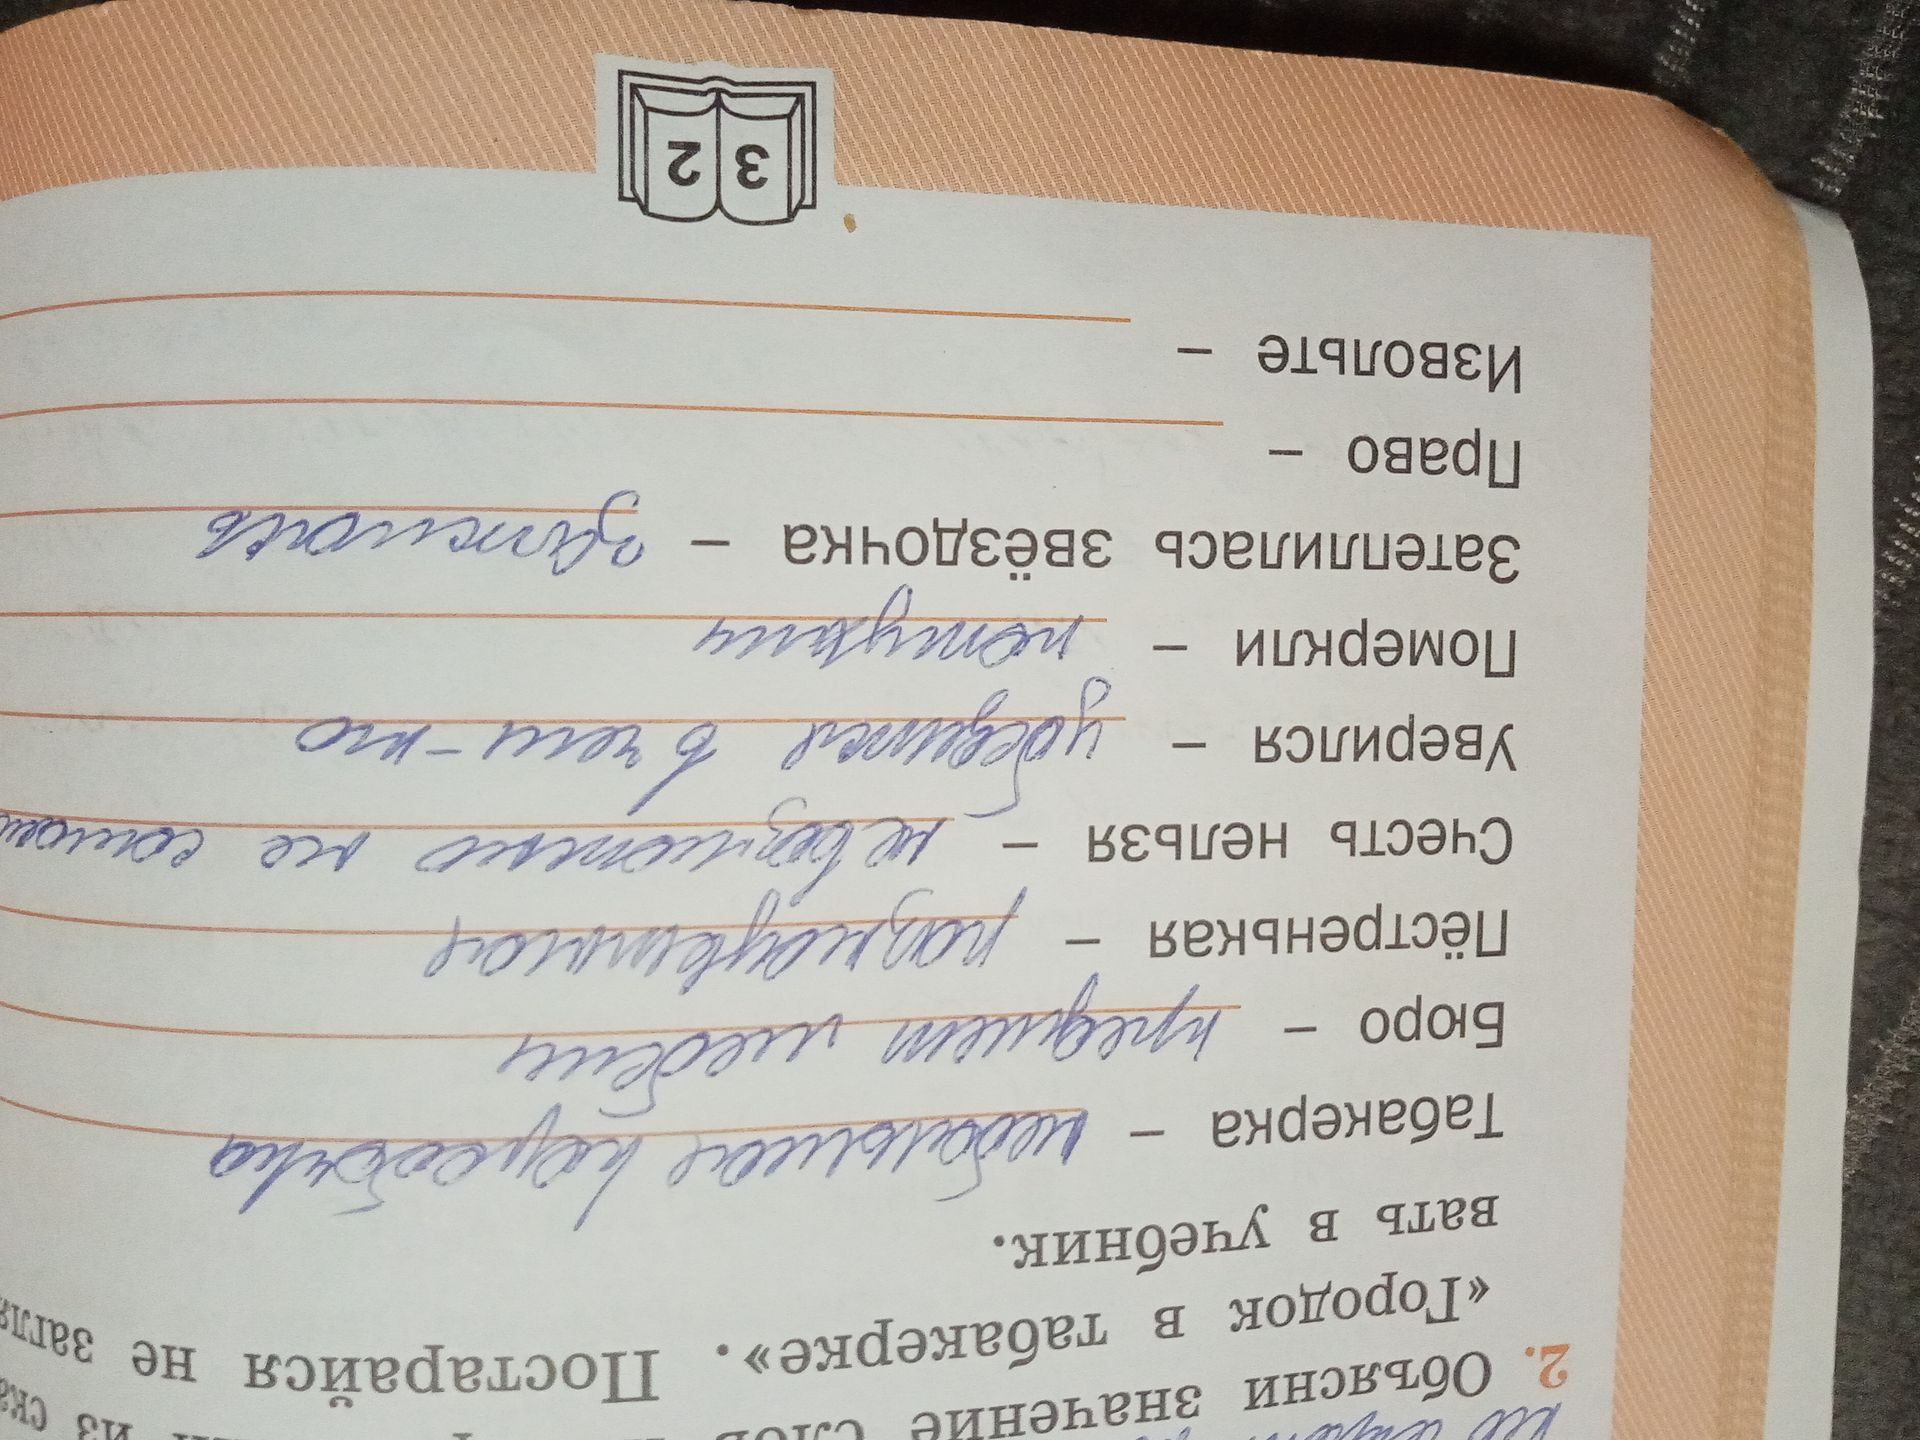 2. Объясни значение слов из
«Городок в табакерке». Постарайся не
вать в учебник.
Табакерка – небольшая коробочка
Бюро – предмет мебели
Пёстренькая – разноцветная
Счесть нельзя – невозможно не
Уверился – убедится в чем-то
Померкли – потухли
Затеплилась звёздочка – зажглась
Право –
Извольте –
32